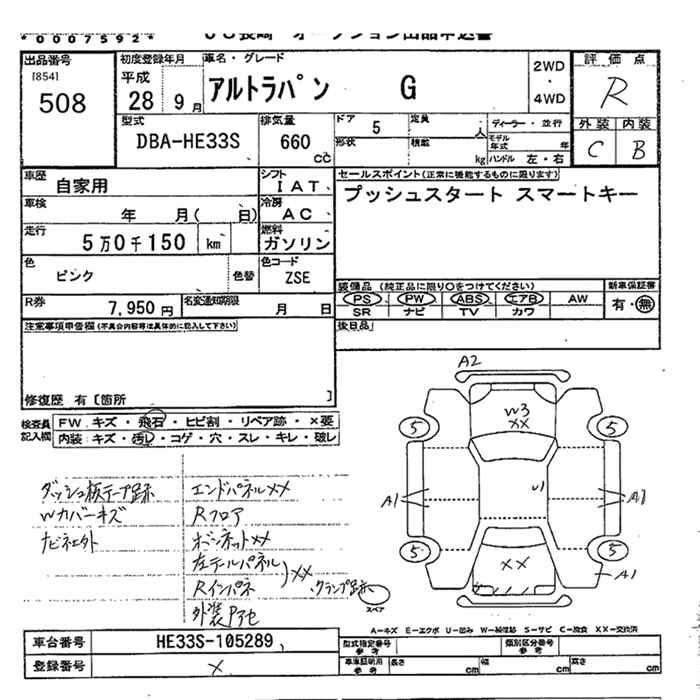 *0007592*
ＪＵ長崎 オークション出品申込書
出品番号
[854]
508
初度登録年月
平成
28 9月
車名・グレード
アルトラパン G
2WD
・
4WD
評価点
R
外装 内装
C B
型式
DBA-HE33S
排気量
660
cc
ドア 5
形状
定員 人
積載 kg
ディーラー・並行
モデル年式 年
ハンドル 左・右
車歴
自家用
シフト
IAT
車検
年 月( 日)
冷房
AC
走行
5万0千150 km
燃料
ガソリン
色
ピンク
色替
色コード
ZSE
R券
7,950円
名変通知期限
月 日
セールスポイント(正常に機能するものに限ります)
プッシュスタート スマートキー
装備品 (純正品に限り○をつけてください)
PS PW ABS エアB AW
SR ナビ TV カワ
新車保証書
有・無
後日品
注意事項申告欄(不具合内容等は具体的に記入して下さい)
修復歴 有〔箇所 〕
検査員
記入欄
FW.キズ・飛石・ヒビ割・リペア跡・×要
内装:キズ・汚レ・コゲ・穴・スレ・キレ・破レ
ダッシュ板テープ跡
Wカバーキズ
ナビ社外
エンドパネルXX
Rフロア
ボンネットXX
左テールパネル
Rインパネ
XX
クランプ跡
外装
A2
W3
XX
5
5
A1
U1
A1
5
5
XX
A1
スペア
A-キズ E-エクボ U-凹み W-補修跡 S-サビ C-腐食 XX-交換済
車台番号
HE33S-105289
登録番号
×
型式指定番号
参考
類別区分番号
参考
車庫証明用
参考
長さ cm
幅 cm
高さ cm